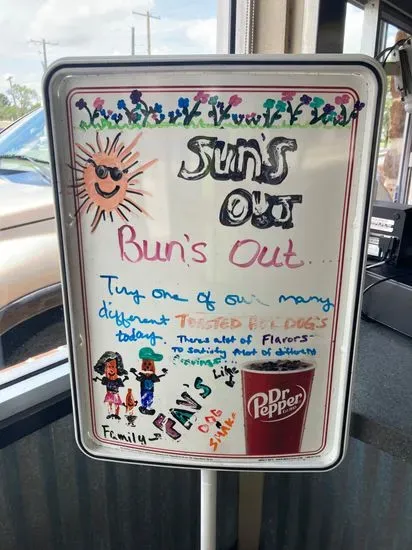 Sun's
OUT
Bun's Out...
Try one of our many
different TOASTED BOX DOG'S
today. Theres alot of Flavors
To satisfy Alot of different
Cravings
Like
FAV'S
DOG
Family
Dr
Pepper